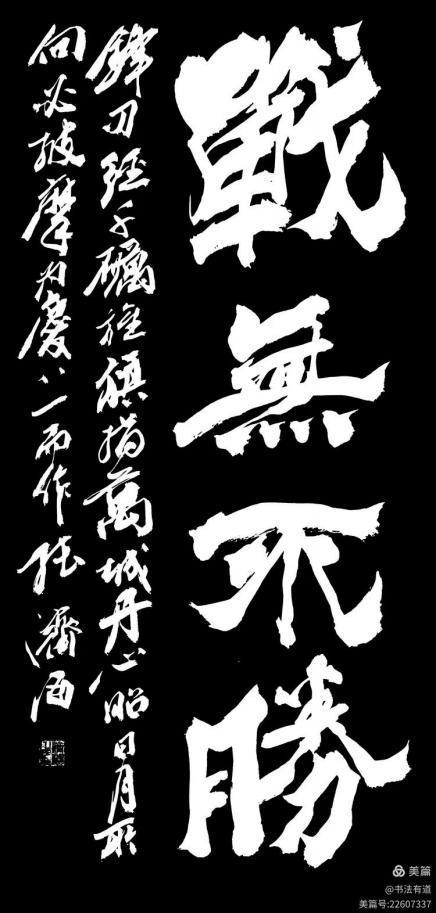 戰無不勝
鋒刃經千礪旌旗指萬城丹心昭日月所
向必披摩为慶八一而作張濟海
美篇
@书法有道
美篇号:22607337